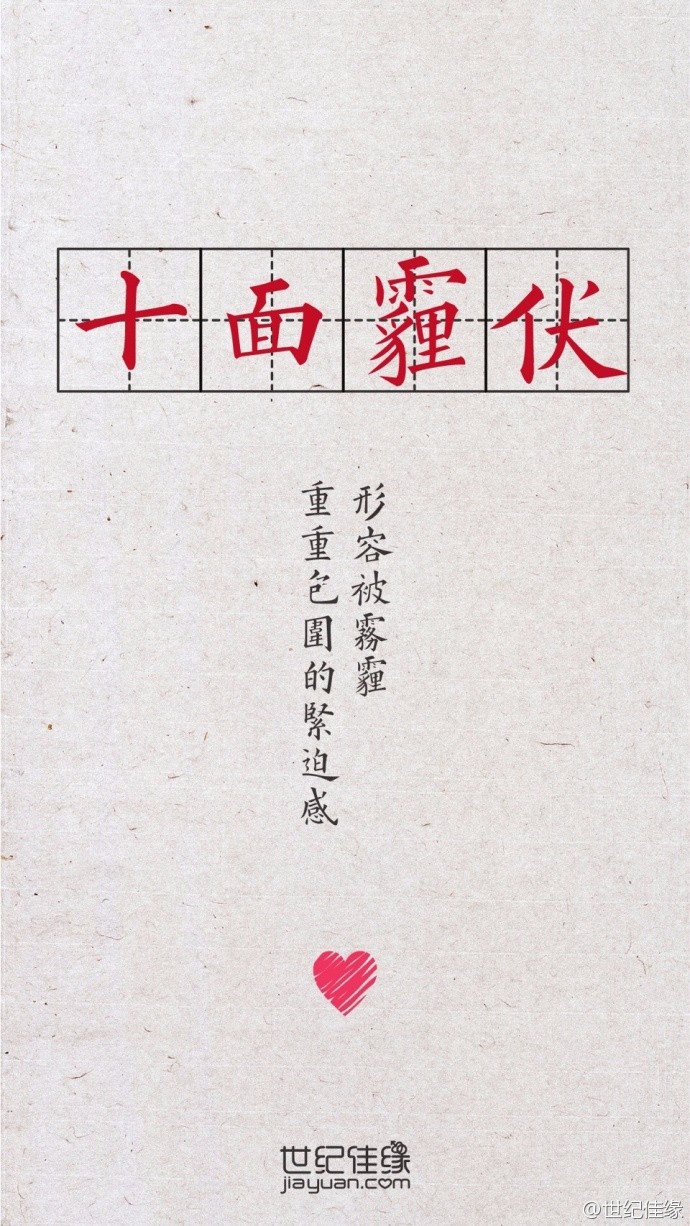 十面霾伏
形容被霧霾
重重包圍的緊迫感
世纪佳缘
jiayuan.com
@世纪佳缘